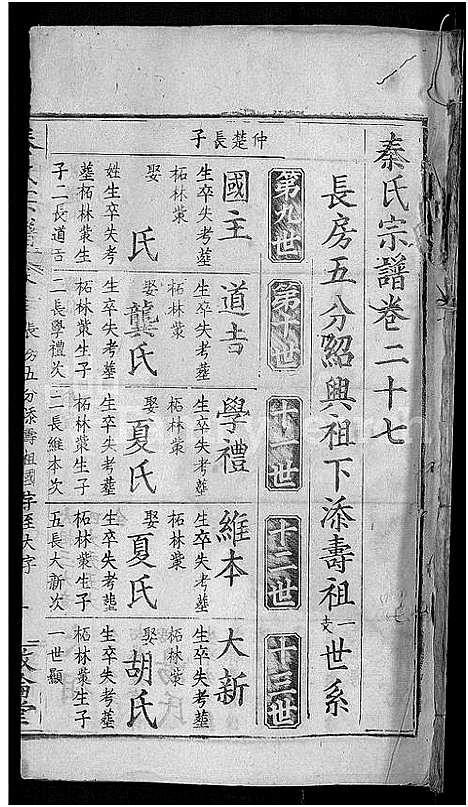 秦氏宗譜卷二十七
長房五分紹興祖下添壽祖一支世系
第九世
第十世
十一世
十二世
十三世
仲楚長子
國主
生卒失考塟
柘林蓃
娶
氏
姓生卒失考
塟柘林蓃生
子二長道吉
道吉
生卒失考塟
柘林蓃
娶龔氏
生卒失考塟
柘林蓃生子
二長學禮次
學禮
生卒失考塟
柘林蓃
娶夏氏
生卒失考塟
柘林蓃生子
二長維本次
維本
生卒失考塟
柘林蓃
娶夏氏
生卒失考塟
柘林蓃生子
五長大新次
大新
生卒失考塟
柘林蓃
娶胡氏
生卒失考塟
柘林蓃生子
一世顯
長房五分添壽祖國字至大字
一